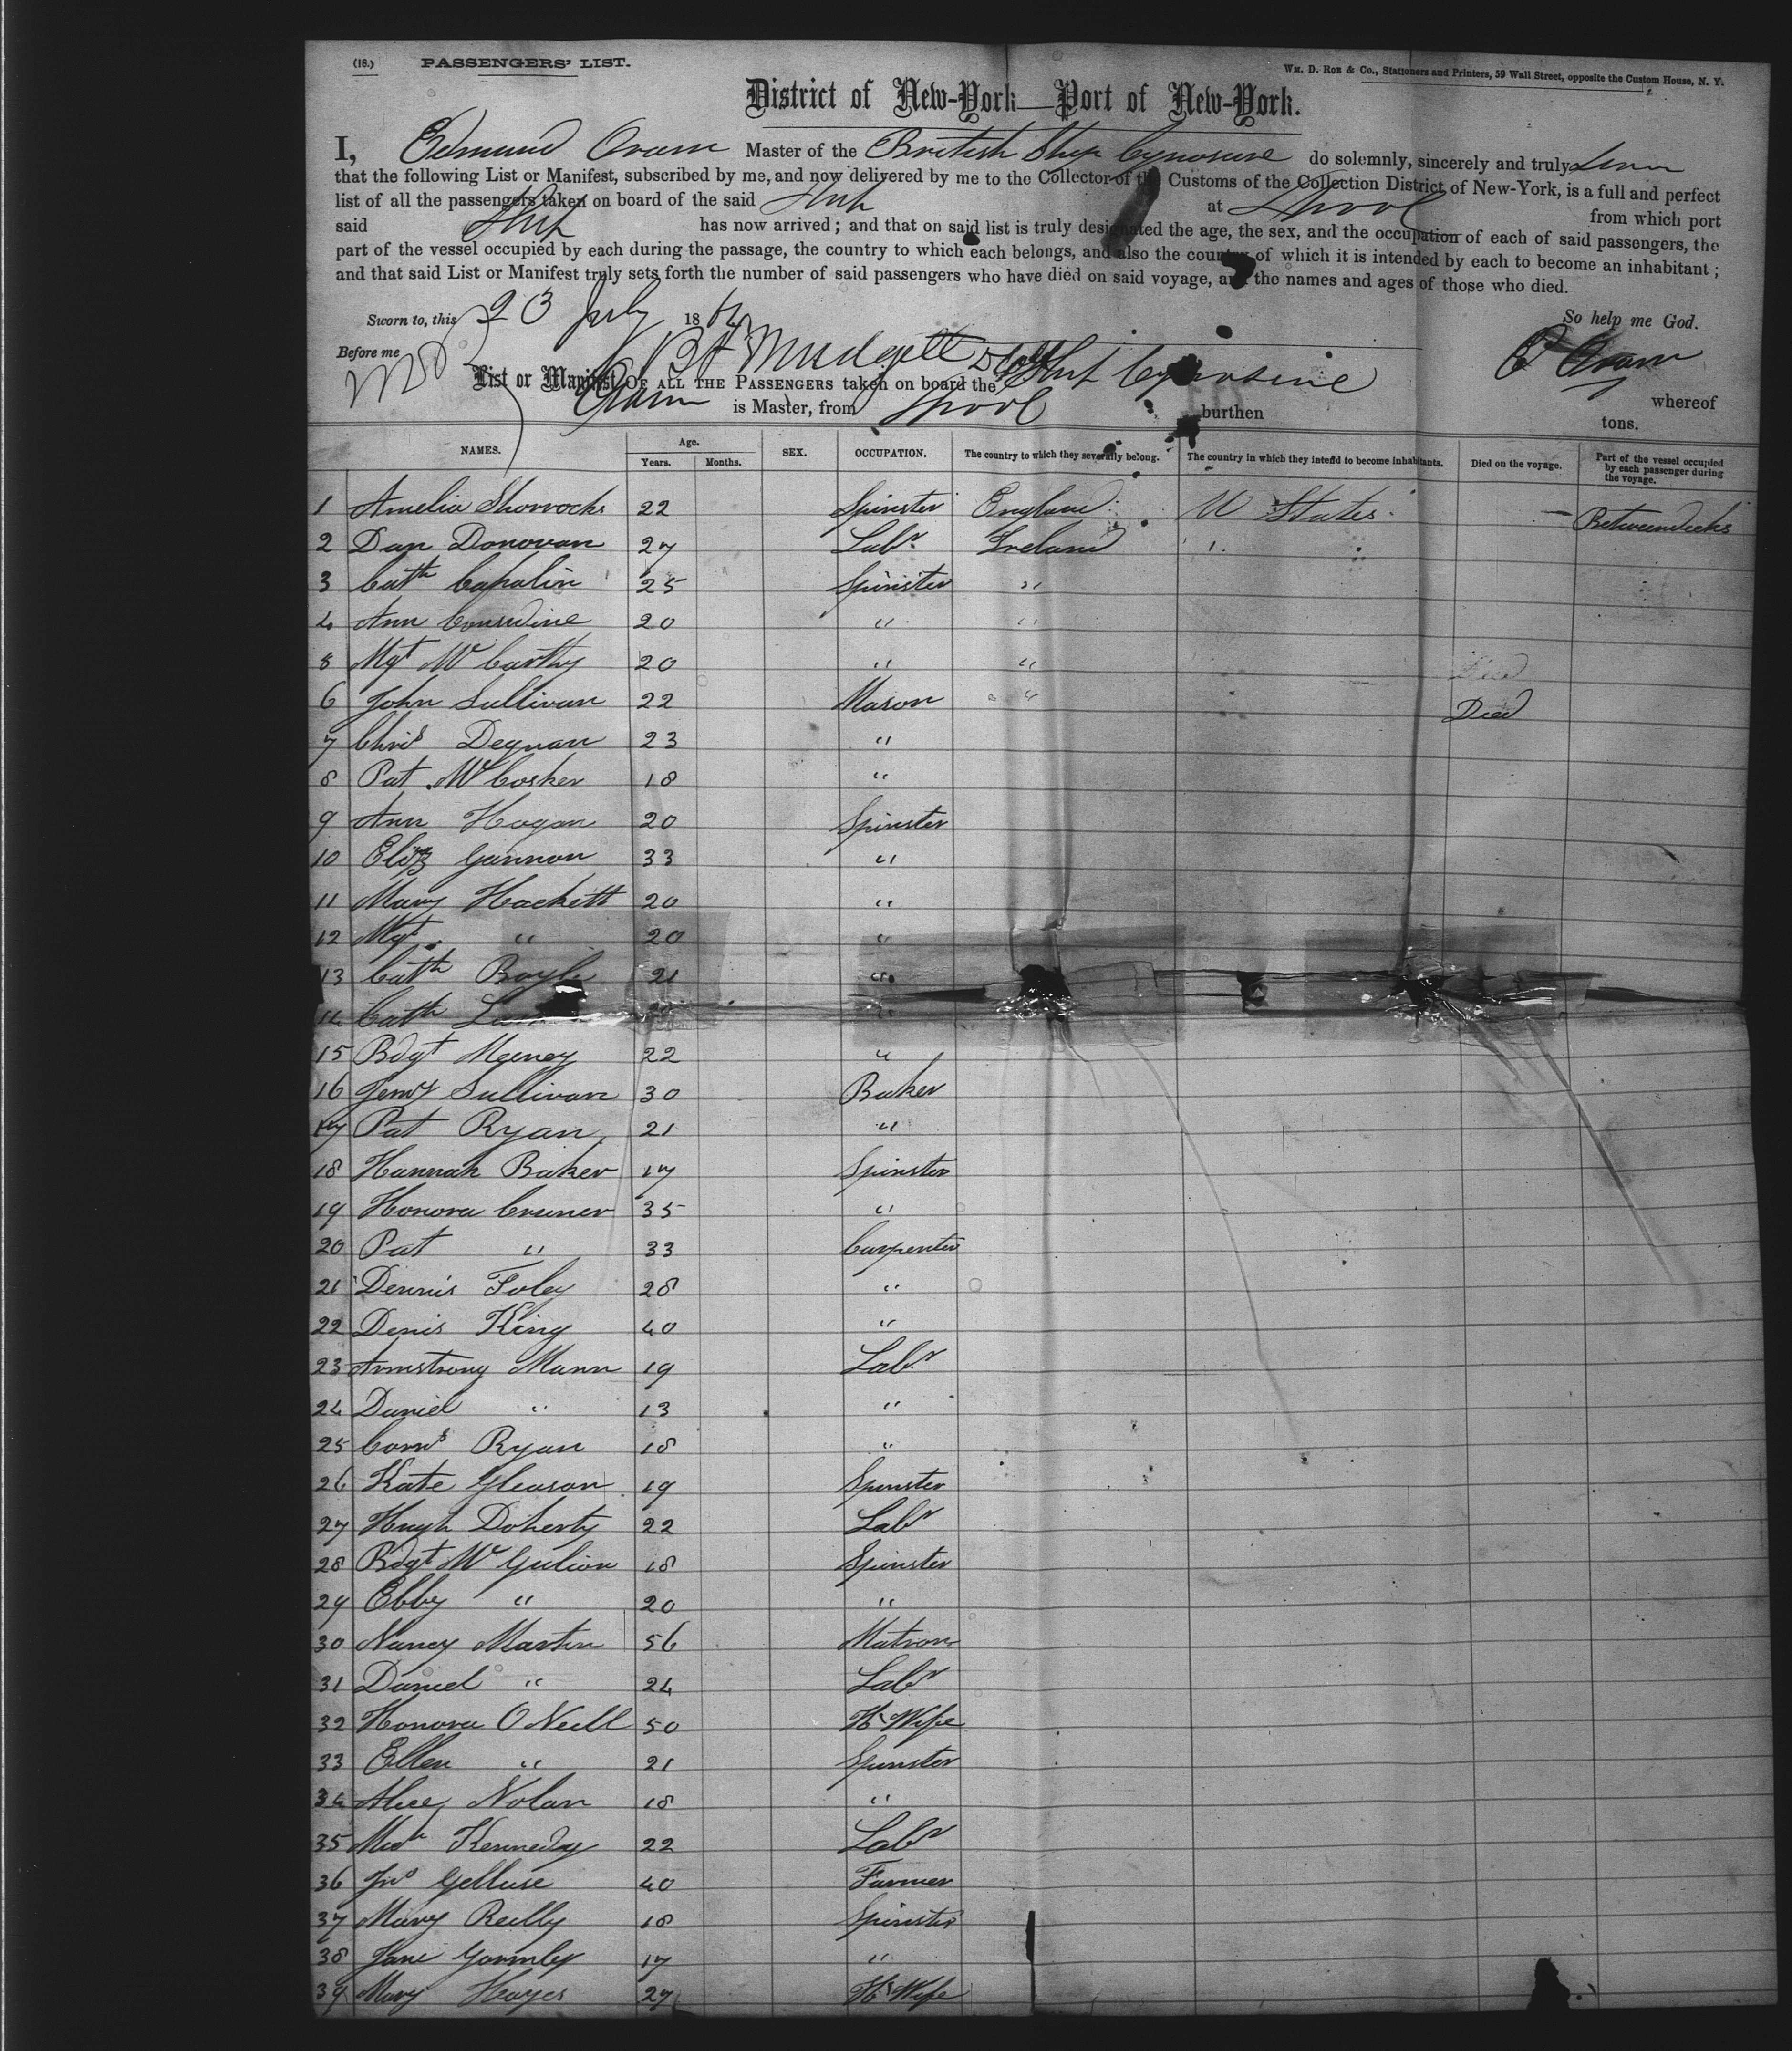 (18.) PASSENGERS' LIST.
WM. D. ROE & CO., Stationers and Printers, 59 Wall Street, opposite the Custom House, N. Y.
District of New-York—Port of New-York.
I, Edmund Oram Master of the British Ship Cynosure do solemnly, sincerely and truly
that the following List or Manifest, subscribed by me, and now delivered by me to the Collector of the Customs of the Collection District of New-York, is a full and perfect
list of all the passengers taken on board of the said Ship at Lpool from which port
said Ship has now arrived; and that on said list is truly designated the age, the sex, and the occupation of each of said passengers, the
part of the vessel occupied by each during the passage, the country to which each belongs, and also the country of which it is intended by each to become an inhabitant;
and that said List or Manifest truly sets forth the number of said passengers who have died on said voyage, and the names and ages of those who died.
Sworn to, this 23 July 186 So help me God.
Before me E Oram
List or Manifest OF ALL THE PASSENGERS taken on board the Ship Cynosure whereof
Oram is Master, from Lpool burthen tons.
NAMES. Age. Years. Months. SEX. OCCUPATION. The country to which they severally belong. The country in which they intend to become inhabitants. Died on the voyage. Part of the vessel occupied by each passenger during the voyage.
1 Amelia Shorrocks 22 Spinster England U States Betweendecks
2 Dan Donovan 27 Labr Ireland "
3 Cath Capalin 25 Spinster "
4 Ann Considine 20 " "
5 Mgt McCarthy 20 " " Died
6 John Sullivan 22 Mason " Died
7 Chris Degnan 23 "
8 Pat McCosker 18 "
9 Ann Hogan 20 Spinster
10 Eliz Gannon 33 "
11 Mary Hackett 20 "
12 Mgt " 20 "
13 Cath Boyle 21 "
14 Cath "
15 Bdgt Meeney 22 "
16 Jemy Sullivan 30 Baker
17 Pat Ryan 21 "
18 Hannah Baker 17 Spinster
19 Honora Creaner 35 "
20 Pat " 33 Carpenter
21 Dennis Foley 28 "
22 Denis King 40 "
23 Armstrong Mann 19 Labr
24 Daniel " 13 "
25 Corns Ryan 18 "
26 Kate Gleason 19 Spinster
27 Hugh Doherty 22 Labr
28 Bdgt McGulion 18 Spinster
29 Ebby " 20 "
30 Nancy Martin 56 Matron
31 Daniel " 24 Labr
32 Honora O Neill 50 H Wife
33 Ellen " 21 Spinster
34 Alice Nolan 18 "
35 Mich Kennedy 22 Labr
36 Jno Gelluse 40 Farmer
37 Mary Reilly 18 Spinster
38 Jane Gormley 17 "
39 Mary Hayes 27 H Wife